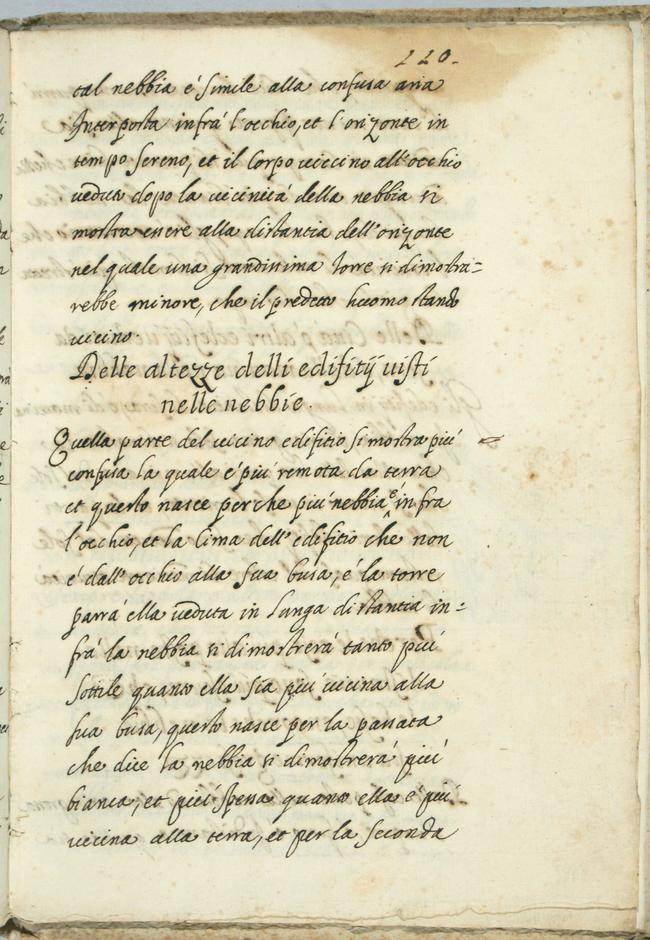 110.
tal nebbia é simile alla confusa aria
Interposta infrá l'occhio, et l'orizonte in
tempo sereno, et il Corpo viccino all'occhio
veduto dopo la vicinitá della nebbia si
mostra essere alla distantia dell'orizonte
nel quale una grandissima torre si dimostra=
rebbe minore, che il predetto huomo stando
vicino.
Delle altezze delli edifitij visti
nelle nebbie.
Quella parte del vicino edifitio si mostra piú
confusa la quale é piú remota da terra
et questo nasce perche piú nebbia é infra
l'occhio, et la Cima dell'edifitio che non
é dall'occhio alla sua busa, é la torre
parrá ella veduta in lunga distantia in=
frá la nebbia si dimostrerá tanto piú
sottile quanto ella sia piú vicina alla
sua busa, questo nasce per la passata
che dice la nebbia si dimostrerá piú
bianca, et piú spessa quanto ella é piú
vicina alla terra, et per la seconda